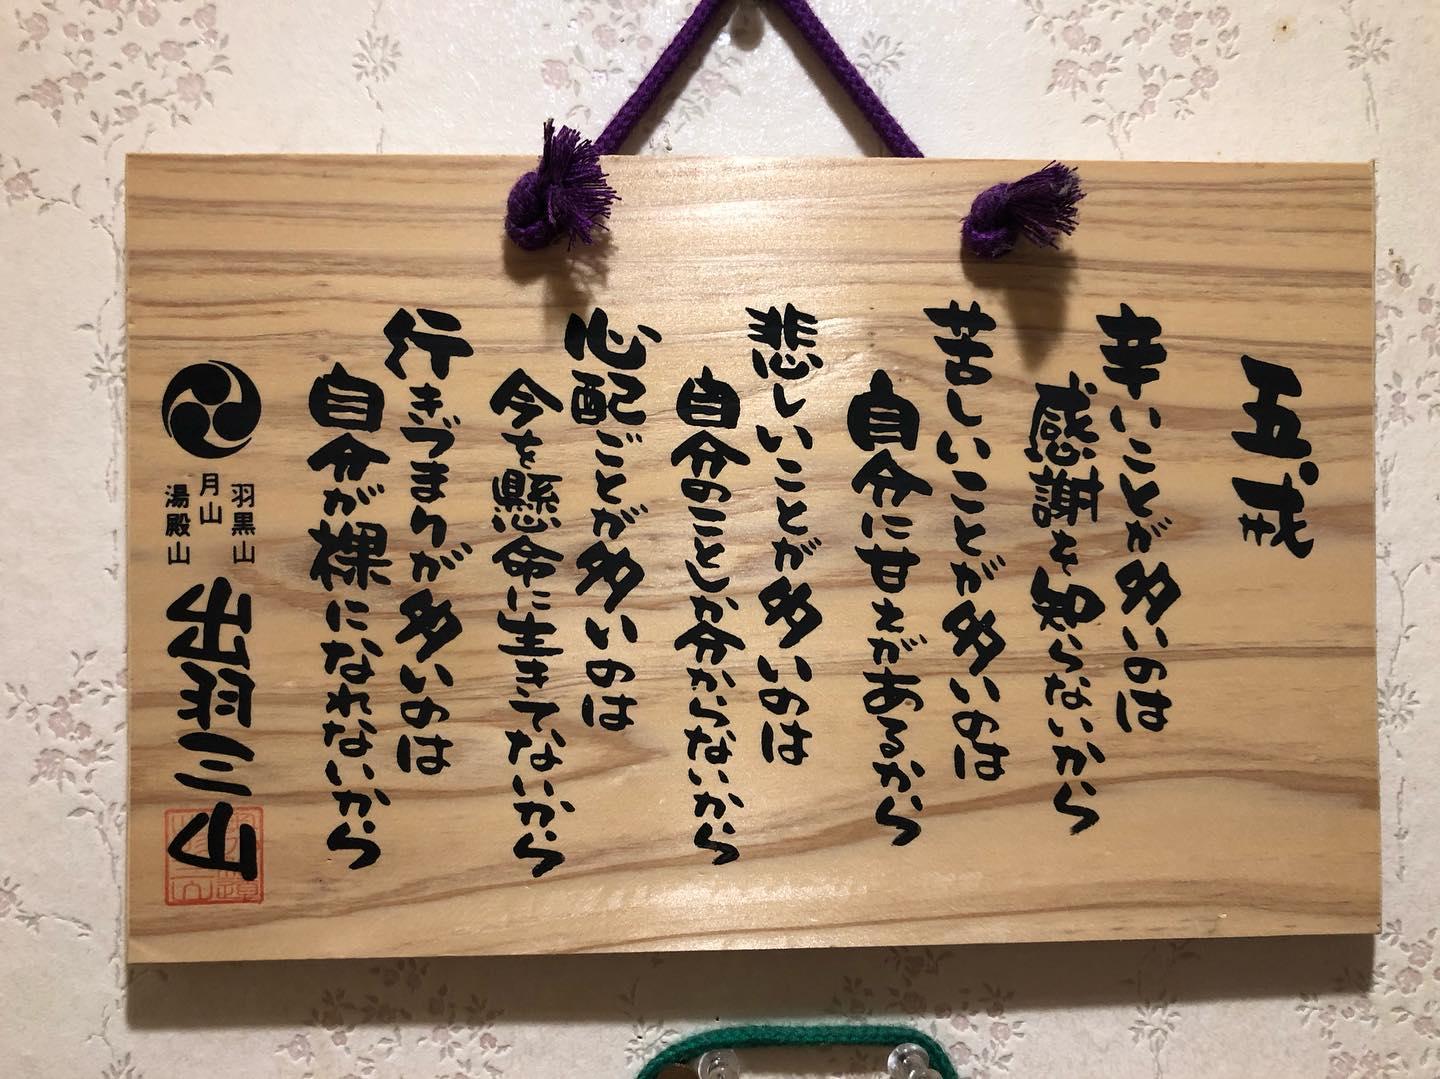 五戒
辛いことが多いのは
感謝を知らないから
苦しいことが多いのは
自分に甘えがあるから
悲しいことが多いのは
自分のことしか分からないから
心配ごとが多いのは
今を懸命に生きてないから
行きづまりが多いのは
自分が裸になれないから
羽黒山
月山
湯殿山
出羽三山